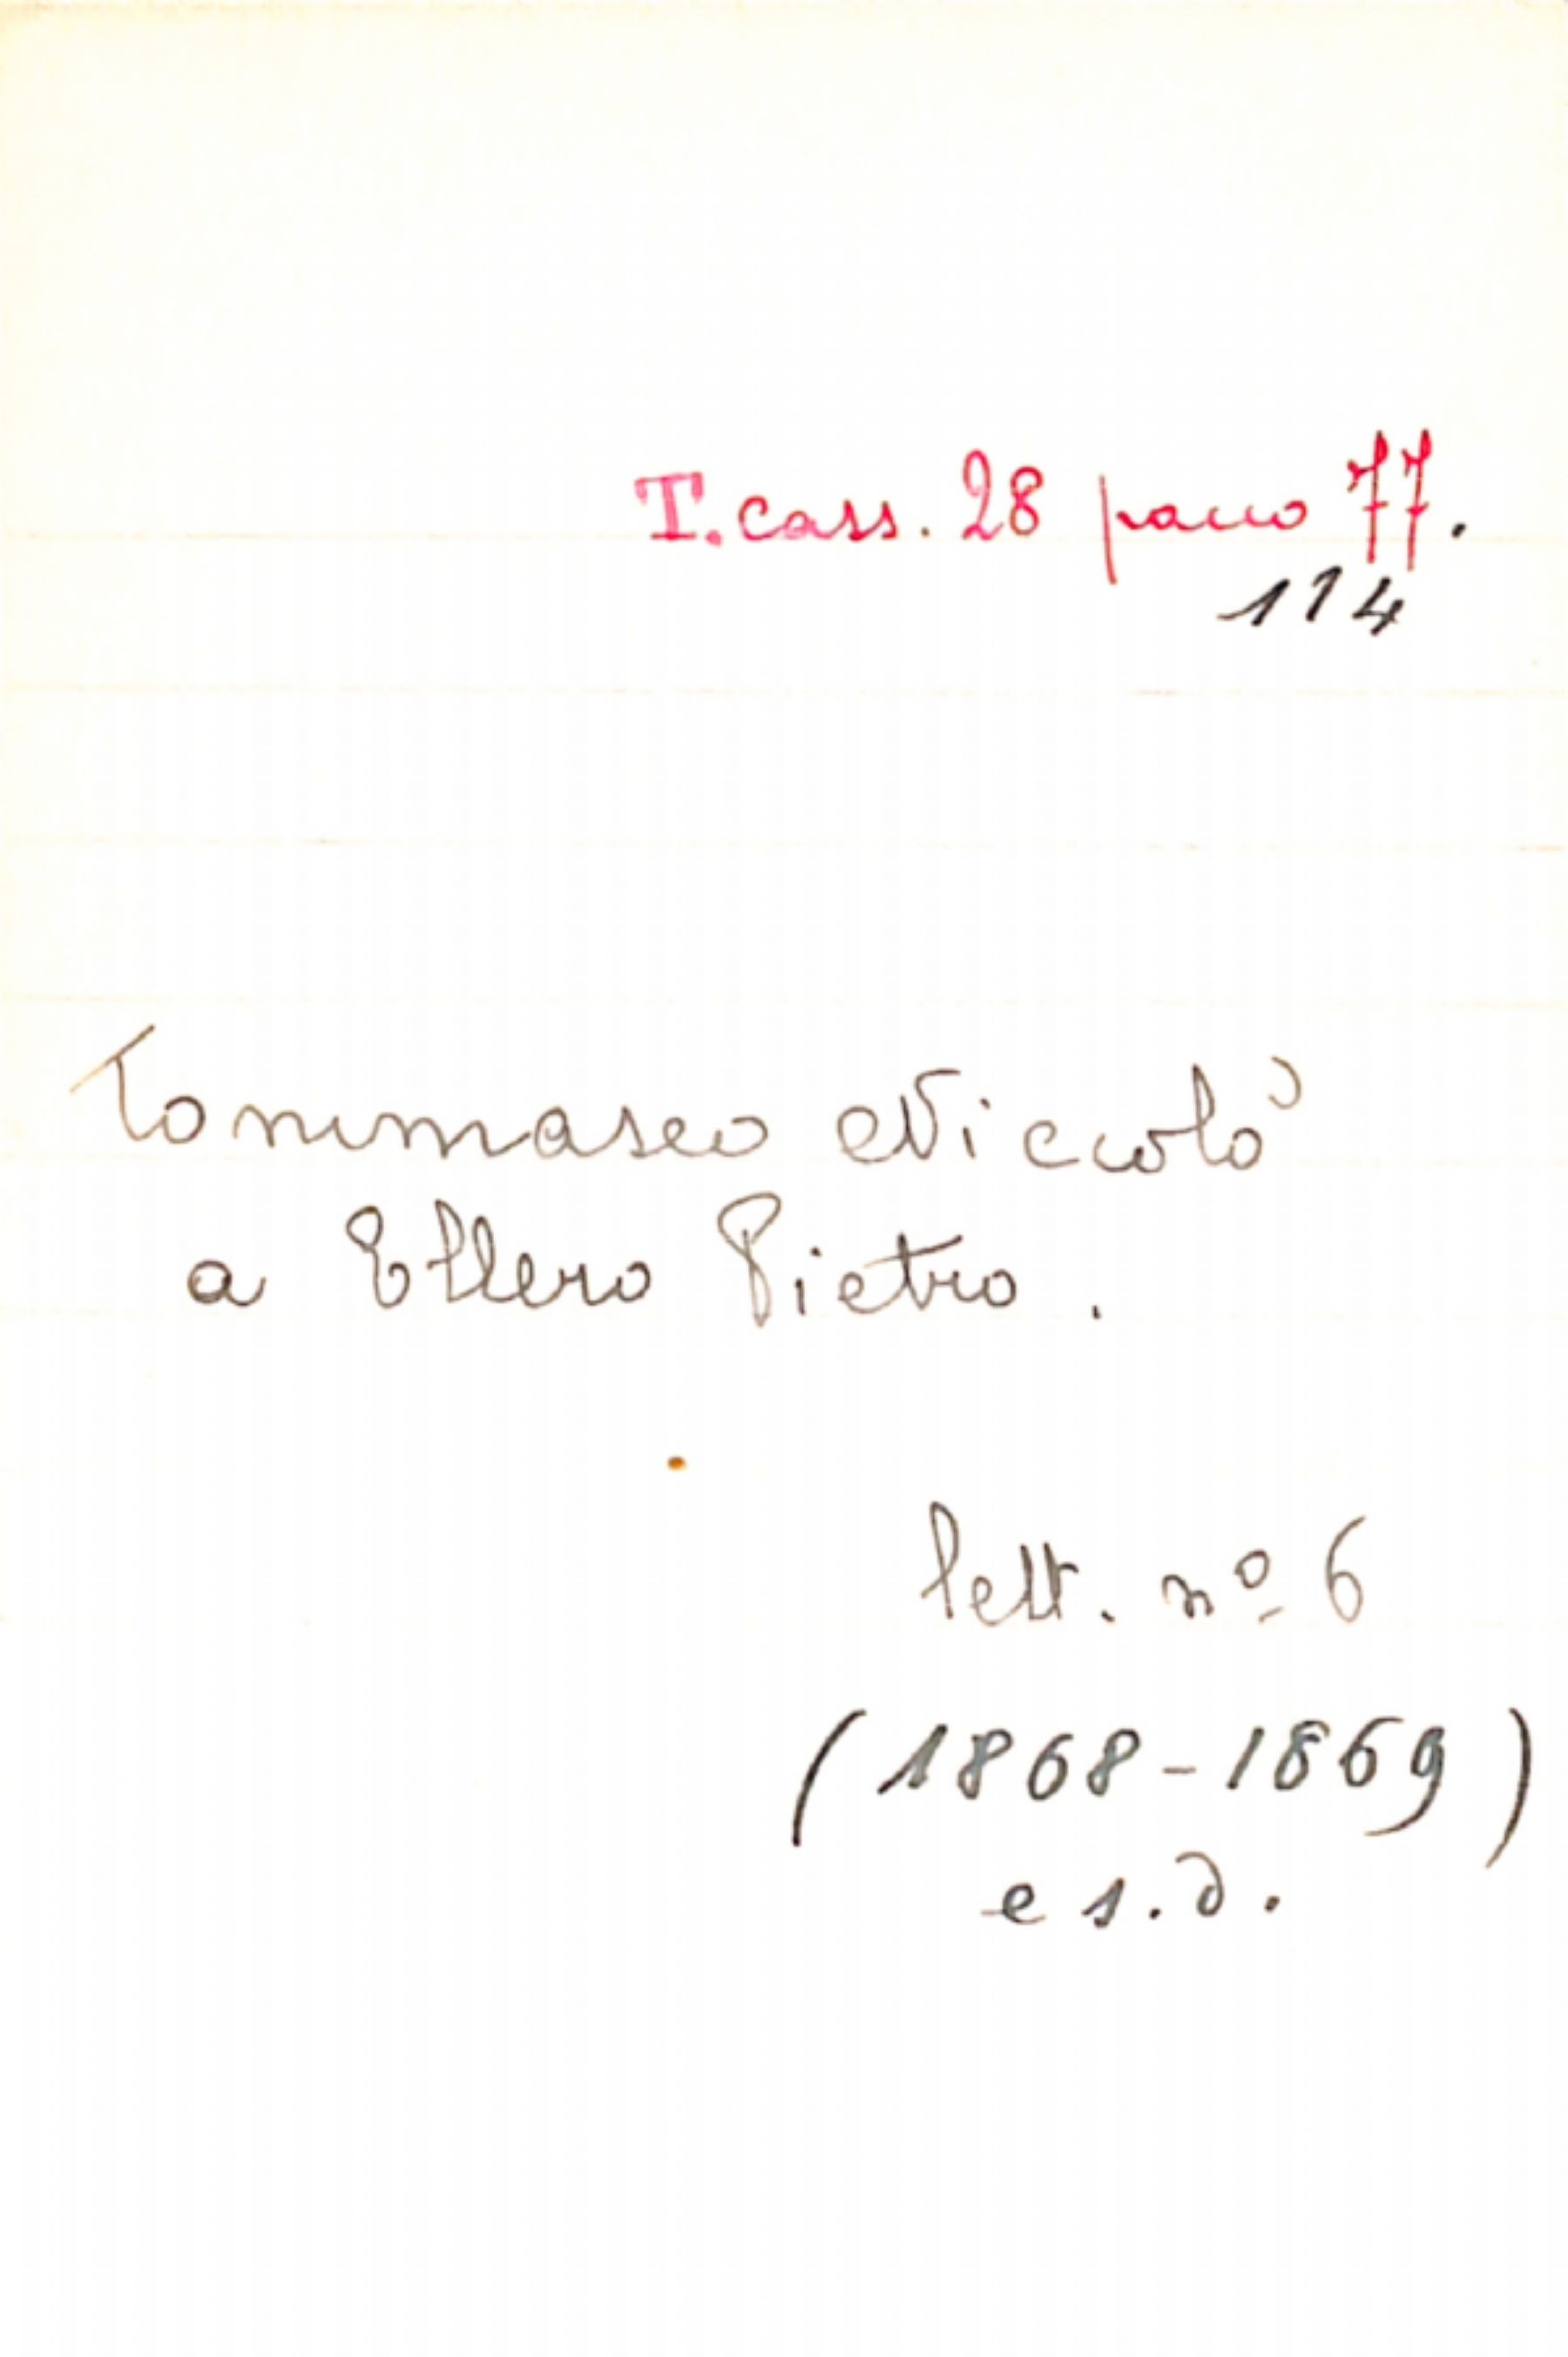 T. cass. 28 pacco 77.
114
Tommaseo Niccolò
a Ellero Pietro.
lett. nº 6
(1868-1869)
e s.d.